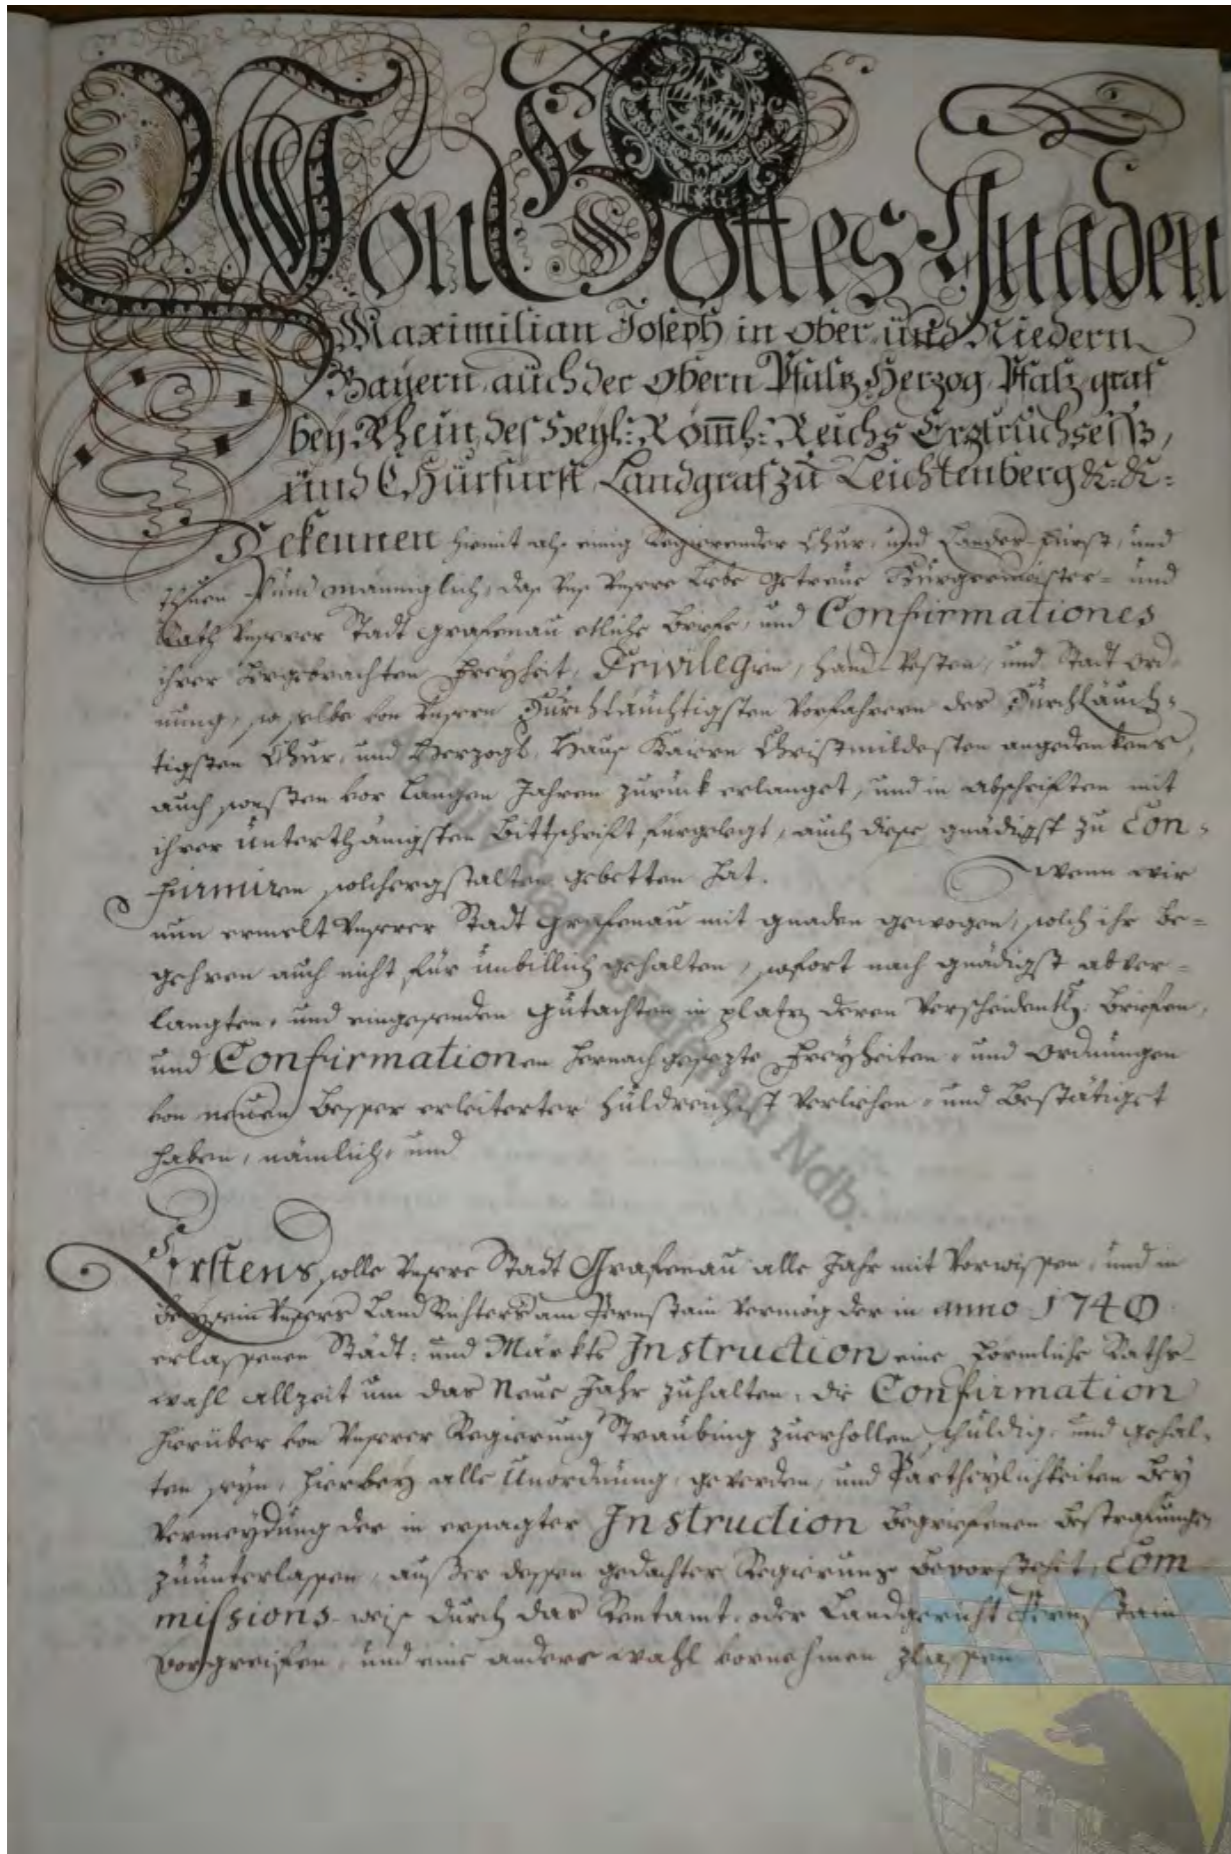 Von Gottes Gnaden
Maximilian Joseph in Ober, und Niedern
Bayern, auch der Obern Pfalz Herzog, Pfalzgraf
bey Rhein, des Heyl: Römh: Reichs Erztruchseß,
und Churfürst, Landgraf zu Leichtenberg &: &:
Bekennen hiemit als einig Regierender Chur, und Landes-Fürst, und
thuen kund männiglich, das Uns Unsere Liebe getreue Burgermeister- und
Rath Unserer Stadt Grafenau etliche Briefe, und Confirmationes
ihrer hergebrachten Freyheit, Privilegien, Hand-Vesten, und Stadt Ord-
nung, so selbe von Unsern Durchläuchtigsten Vorfahrern des Durchläuch-
tigsten Chur, und Herzogl. Haus Baiern Christmildesten angedenkens,
auch vor Langen Jahren zuruck erlanget, und in abschriften mit
ihrer unterthänigsten Bittschrift fürgelegt, auch diese gnädigst zu Con-
firmiren solchergstalten gebetten hat. Wenn wir
nun ermelt Unserer Stadt Grafenau mit gnaden gewogen, solch ihr Be-
gehren auch nicht für unbillich gehalten, sofort nach gnädigst abver-
langten, und Gutachten in platz deren Briefen,
und Confirmationen hernach gesezte Freyheiten, und Ordnungen
von neuen Besser erleiterter huldreichist Verliehen, und Bestätiget
haben, nämlich, und
Erstens, solle Unsere Stadt Grafenau alle Jahr mit Vorwissen, und in
Beysein Unsers Land Richters am Bernstain Vermög der in anno 1740
erlassenen Städt- und Märkts Instruction eine Förmliche Raths-
wahl allzeit um das Neue Jahr zuhalten, die Confirmation
hierüber von Unserer Regierung Straubing zuerhollen schuldig, und gehal-
ten seyn, hierbey alle Unordnung, und Partheylichkeiten Bey
Vermeydung der in ersagter Instruction Begriefenen Bestrafungen
zuunterlassen, außer dessen gedachter Regierung Bevorstehet, Com
missions-weis durch das Rentamt, oder Landgericht Bernstain
Vorgreifen, und eine andere wahl vornehmen zlassen
Ndb.